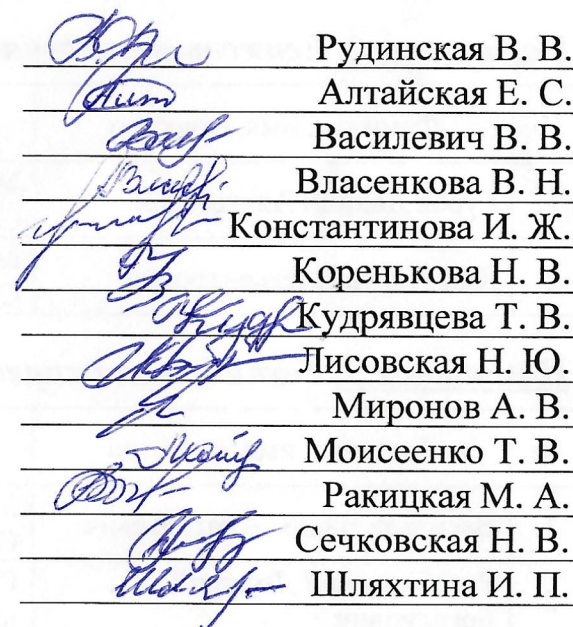 Рудинская В. В.
Алтайская Е. С.
Василевич В. В.
Власенкова В. Н.
Константинова И. Ж.
Коренькова Н. В.
Кудрявцева Т. В.
Лисовская Н. Ю.
Миронов А. В.
Моисеенко Т. В.
Ракицкая М. А.
Сечковская Н. В.
Шляхтина И. П.